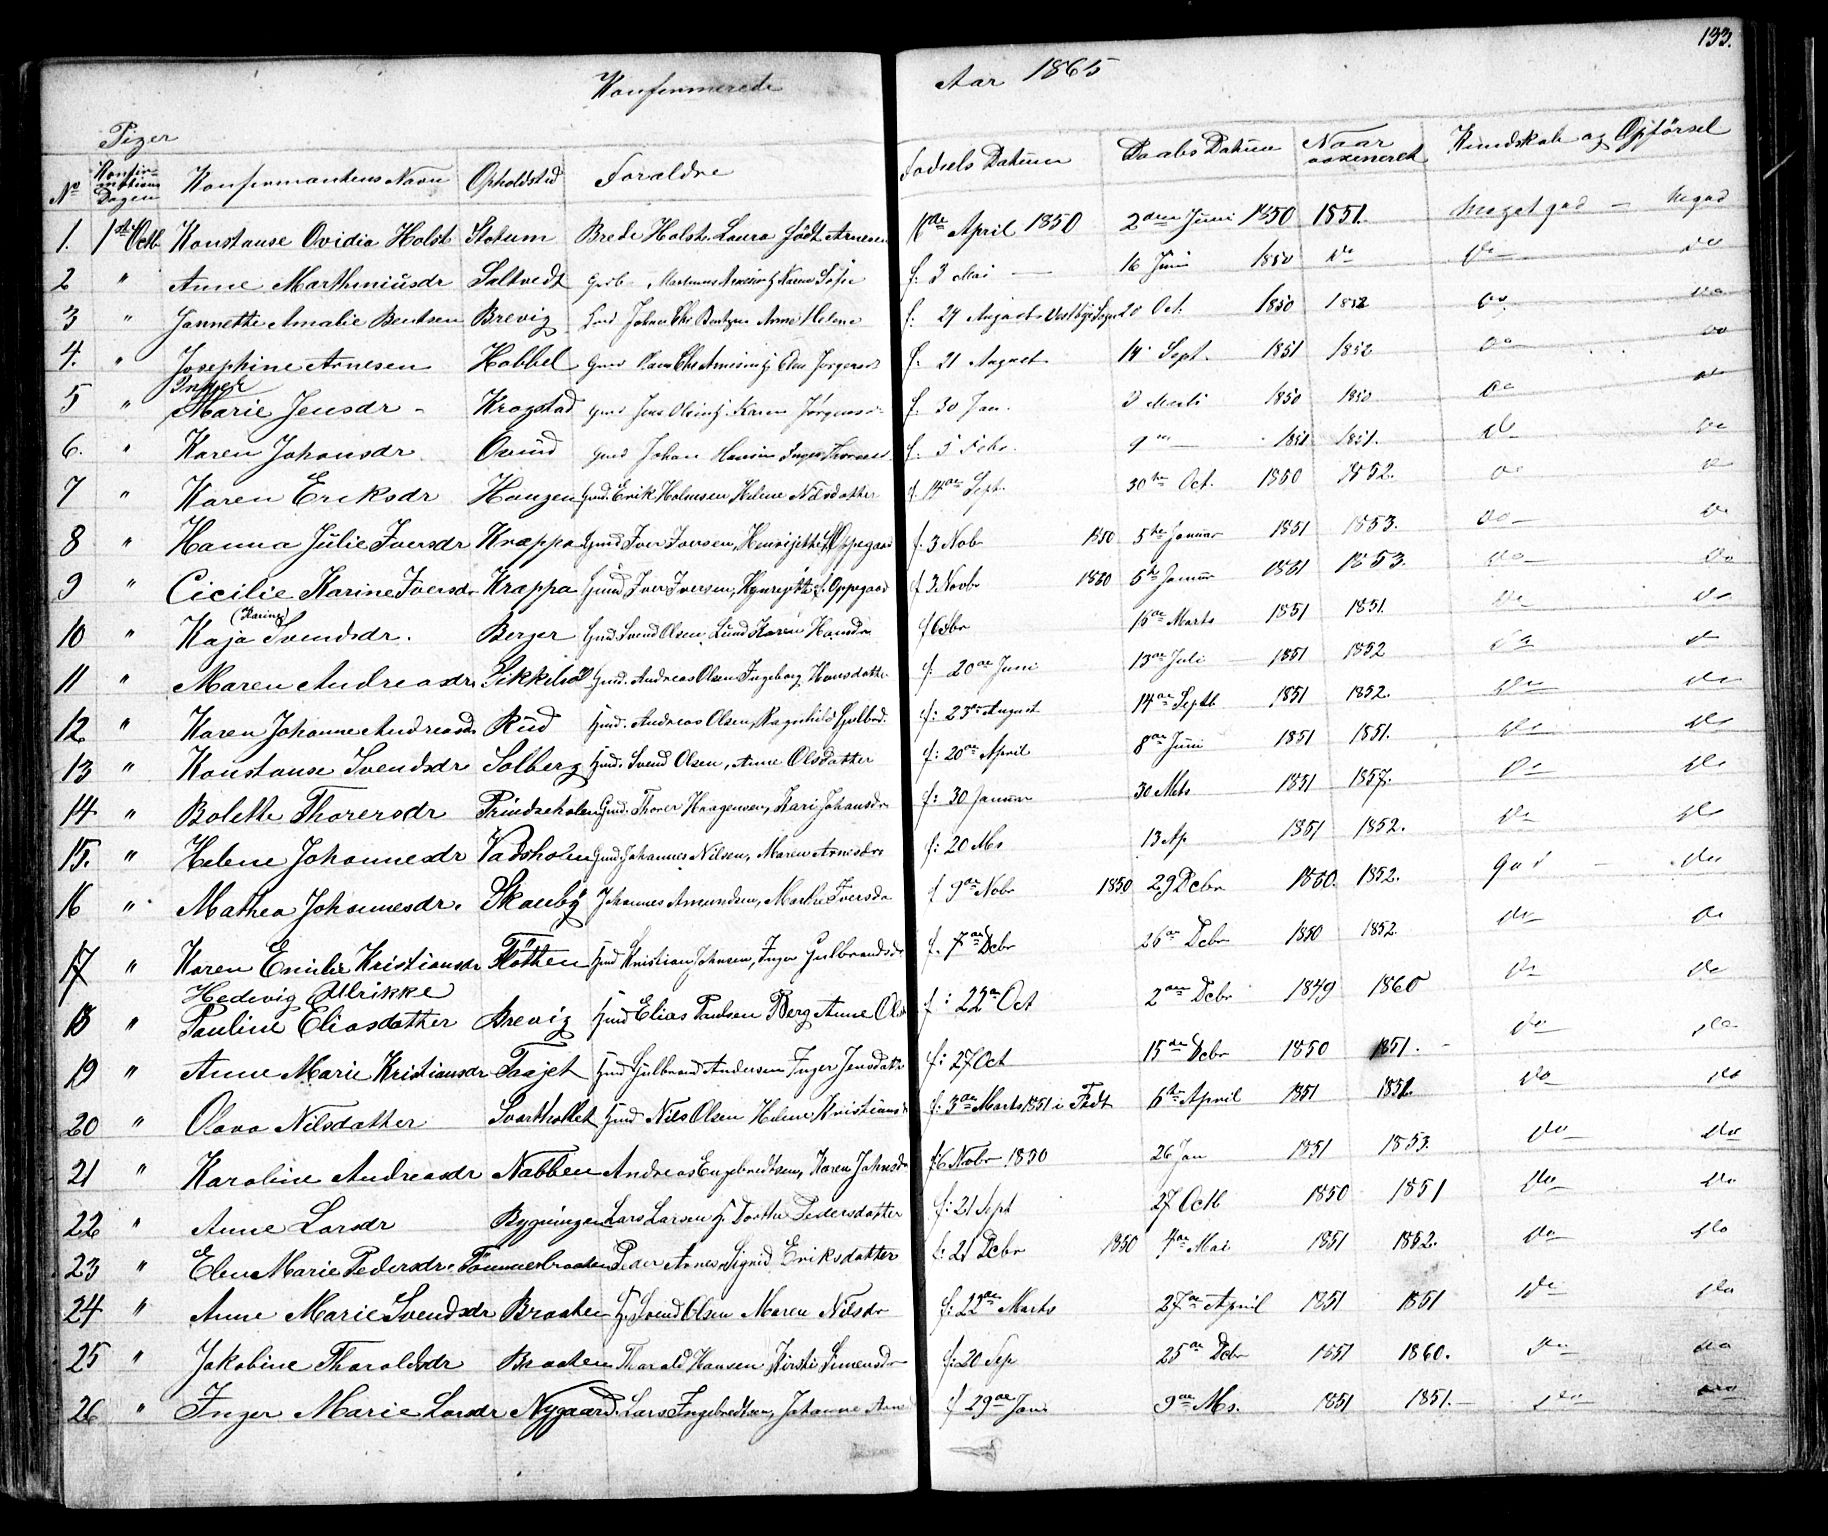 133.
Konfirmerede Aar 1865
Piger
No Konfirmations Dagen Konfirmantens Navn Opholdsted Forældre Fødsels Datum Daabs Datum Naar vaxineret Kundskab og Opførsel
1. 1st Octb Konstanse Ovidia Holst Brede Holst. Laura født Arnesen April 1850 2den Juni 1850 1851. Meget god — Megod
2 " Anne Marthiniusdr Saltvedt f: 3 Mai — 16 Juni 1850 do do do
3 " Jannette Amalie Bentsen Brevig Anne Helene f: 24 August Vestby Sogn 20 Oct. 1850 1852 do do
4. " Josephine Arnesen Hobbel f: 21 August 14 Sept. 1851 1852 do do
5 " Inger Marie Jensdr - Kragstad f. 30 Jan. 1850 1850 do do
6. " Karen Johansdr Gmd Johan Hansen Inger f. 5 Febr. 9 1851 1851. do do
7 " Karen Eriksdr Haugen Gmd. Erik Holmsen Helene Nilsdatter f. 14de Sept. 30te Oct. 1850 1852. do do
8 " Hanna Julie Iversdr Krappa Gmd Iver Iversen, Henrijette f Oppegaard f. 3 Nobr 1850 5te Januar 1851 1853. do do
9 " Cicilie Karine Iversdr Krappa Gmd Iver Iversen, Henrijette f. Oppegaard f 3 Novbr 1850 5te Januar 1851 1853. do do
10 " Kaja (Karine) Svendsdr. Berger Gmd. Svend Olsen Lund Karen Hansdr 16de Marts 1851 1851. do do
11 " Maren Andreasdr Sikkeland Gmd. Andreas Olsen Ingeborg Hansdatter f: 20de Juni 13de Juli 1851 1852 do do
12 " Karen Johanne Andreasdr Rud Gmd. Andreas Olsen, Ragnhild Gulbrd. f: 23de August 14de Septb 1851 1852. do do
13 " Konstanse Svendsdr Solberg Gmd. Svend Olsen, Anne Olsdatter f: 20de April 8de Juni 1851 1851. do do
14 " Bolette Thorersdr Prindseholen Gmd. Thorer Haagensen, Kari Johansdr f: 30 Januar 30 Mts 1851 1857. do do
15. " Helene Johannesdr Vadsholen Gmd Johannes Nilsen, Maren Arnesdr f: 20 Ms 13 Ap 1851 1852. do do
16 " Mathea Johannesdr. Skauby Johannes Amundsen, Marthe Iversdr f 9de Nobr 1850 29 Dcbr 1850. 1852. god — do
17 " Karen Emilie Kristiansdr Fløtten Gmd Kristian Johnsen, Inger Gulbrandsdr f. 7de Dcbr 26de Dcbr 1850 1852 do do
18 " Hedevig Ulrikke Pauline Eliasdatter Brevig Gmd Elias Paulsen Berg Anne f: 22de Oct 2den Dcbr 1849 1860 do do
19 " Anne Marie Kristiansdr Taajet Gmd Gulbrand Andersen Inger Jensdatr f: 27 Oct 15de Dcbr 1850 1851. - do do
20 " Olava Nilsdatter Svarthollet Gmd Nils Olsen Helene Kristiansdr f: 3de Marts 1851 i Født 6te April 1851 1851. do do
21 " Karoline Andreasdr Nabben Andreas Engebredtsen, Karen Johnsdr f 6 Novbr 1850 26 Jan 1851 1853. do do
22 " Anne Larsdr Bygningen Lars Larsen G. Dorthe Pedersdatter f: 21 Sept 27 Octb 1850 1851 do do
23 " Elen Marie Pedersdr. Tømmerbraaten Peder Arnes. Sigrid Eriksdatter f: 21 Dcbr 1850 4de Mai 1851 1852. do do
24 " Anne Marie Svendsdr Braaten G. Svend Olsen Maren Nilsdr f: 22de Marts 27de April 1851 1851 do do
25 " Jakobine Tharaldsdr Braaten Tharald Hansen, Kirsti Simensdr f: 20 Sep 25de Dcbr 1851 1860. do do
26 " Inger Marie Larsdr Nygaard. Lars Ingebredtsen, Johanne Arne f 29de Jan. 9de Ms. 1851 1851.— do do